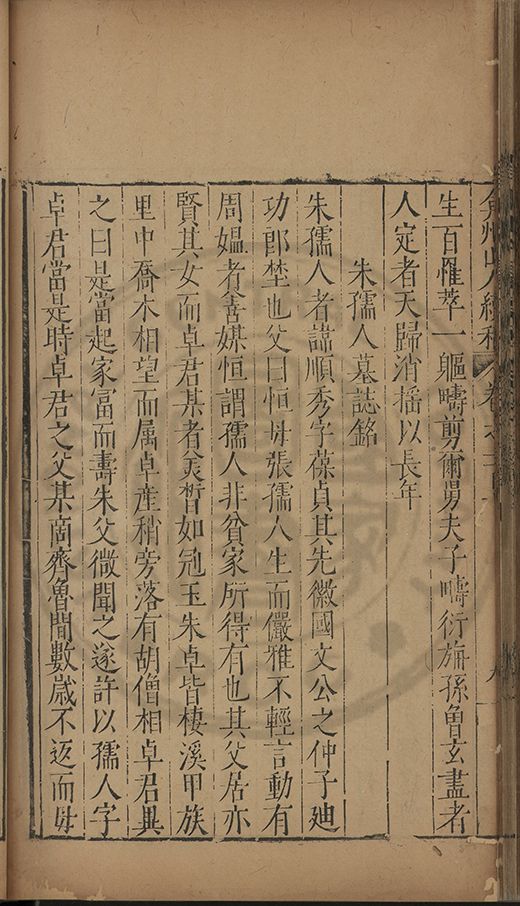 生百罹萃一軀疇剪爾舅夫子疇衍旃孫魯玄盡者
人定者天歸消摇以長年
朱孺人墓誌銘
朱孺人者諱順秀字葆貞其先徽國文公之仲子廸
功郎埜也父曰恒母張孺人生而儼雅不輕言動有
周媼者善媒恒謂孺人非貧家所得有也其父居亦
賢其女而卓君某者美晳如冠玉朱卓皆棲溪甲族
里中喬木相望而属卓産稍旁落有胡僧相卓君異
之曰是當起家冨而壽朱父微聞之遂許以孺人字
卓君當是時卓君之父某商齊魯間數歲不返而母